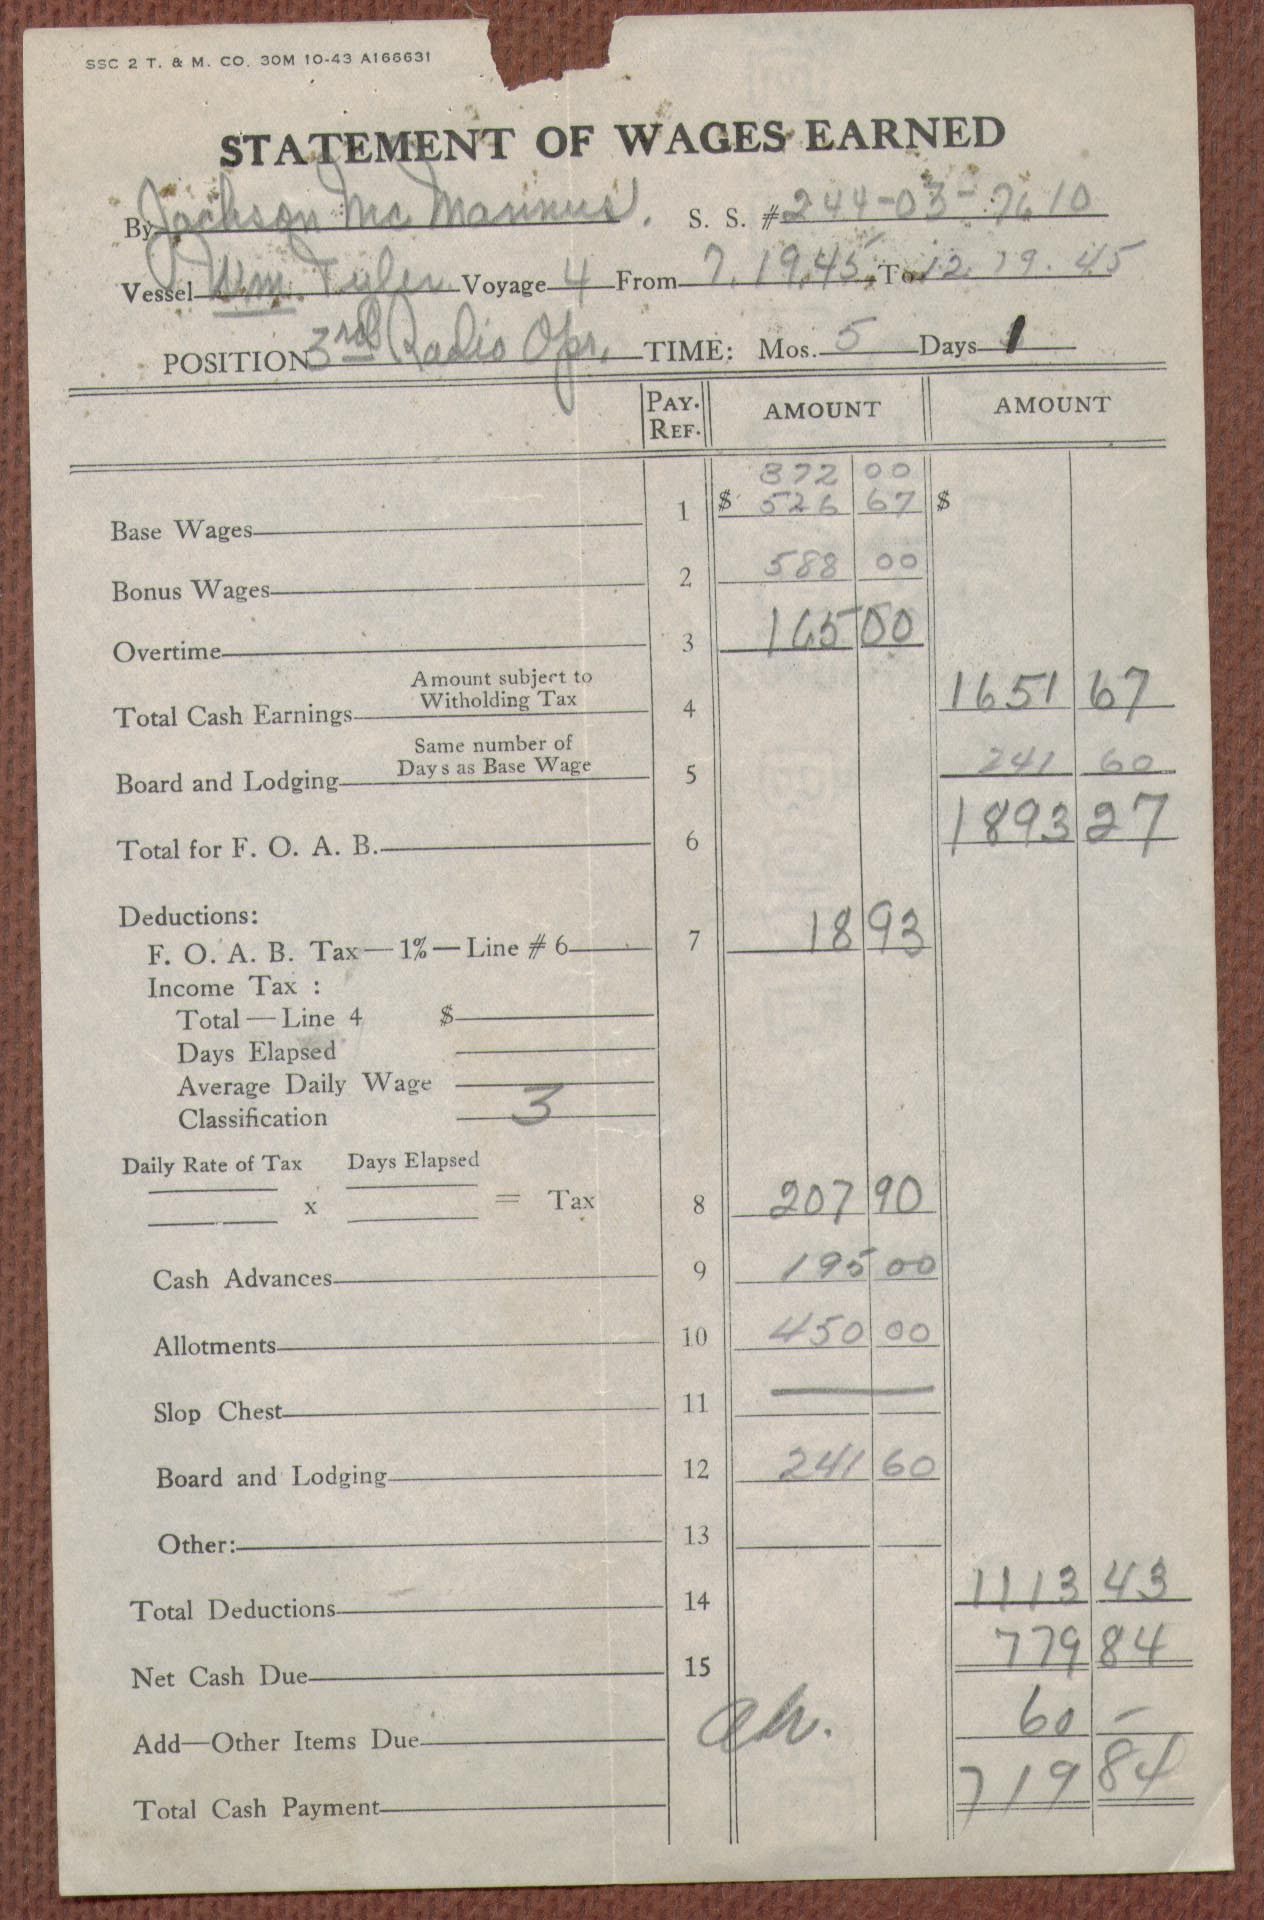 SSC 2 T. & M. CO. 30M 10-43 A166631
STATEMENT OF WAGES EARNED
By Jackson Mc Mannus. S. S. # 244-03-7610
Vessel Wm. Tyler Voyage 4 From 7.19.45, To 12.19.45
POSITION 3rd Radio Opr. TIME: Mos. 5 Days 1
PAY. REF. AMOUNT AMOUNT
372 00
Base Wages 1 $ 526 67 $
Bonus Wages 2 588 00
Overtime 3 165 00
Amount subject to
Total Cash Earnings Witholding Tax 4 1651 67
Same number of
Board and Lodging Days as Base Wage 5 241 60
Total for F. O. A. B. 6 1893 27
Deductions:
F. O. A. B. Tax—1%—Line # 6 7 18 93
Income Tax :
Total—Line 4 $
Days Elapsed
Average Daily Wage
Classification 3
Daily Rate of Tax Days Elapsed
x = Tax 8 207 90
Cash Advances 9 195 00
Allotments 10 450 00
Slop Chest 11 —
Board and Lodging 12 241 60
Other: 13
Total Deductions 14 1113 43
Net Cash Due 15 779 84
Add—Other Items Due 60 –
Total Cash Payment 719 84